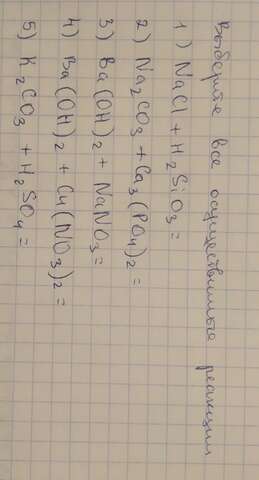 Выберите все осуществимые реакции
1) NaCl + H2SiO3 =
2) Na2CO3 + Ca3(PO4)2 =
3) Ba(OH)2 + NaNO3 =
4) Ba(OH)2 + Cu(NO3)2 =
5) K2CO3 + H2SO4 =